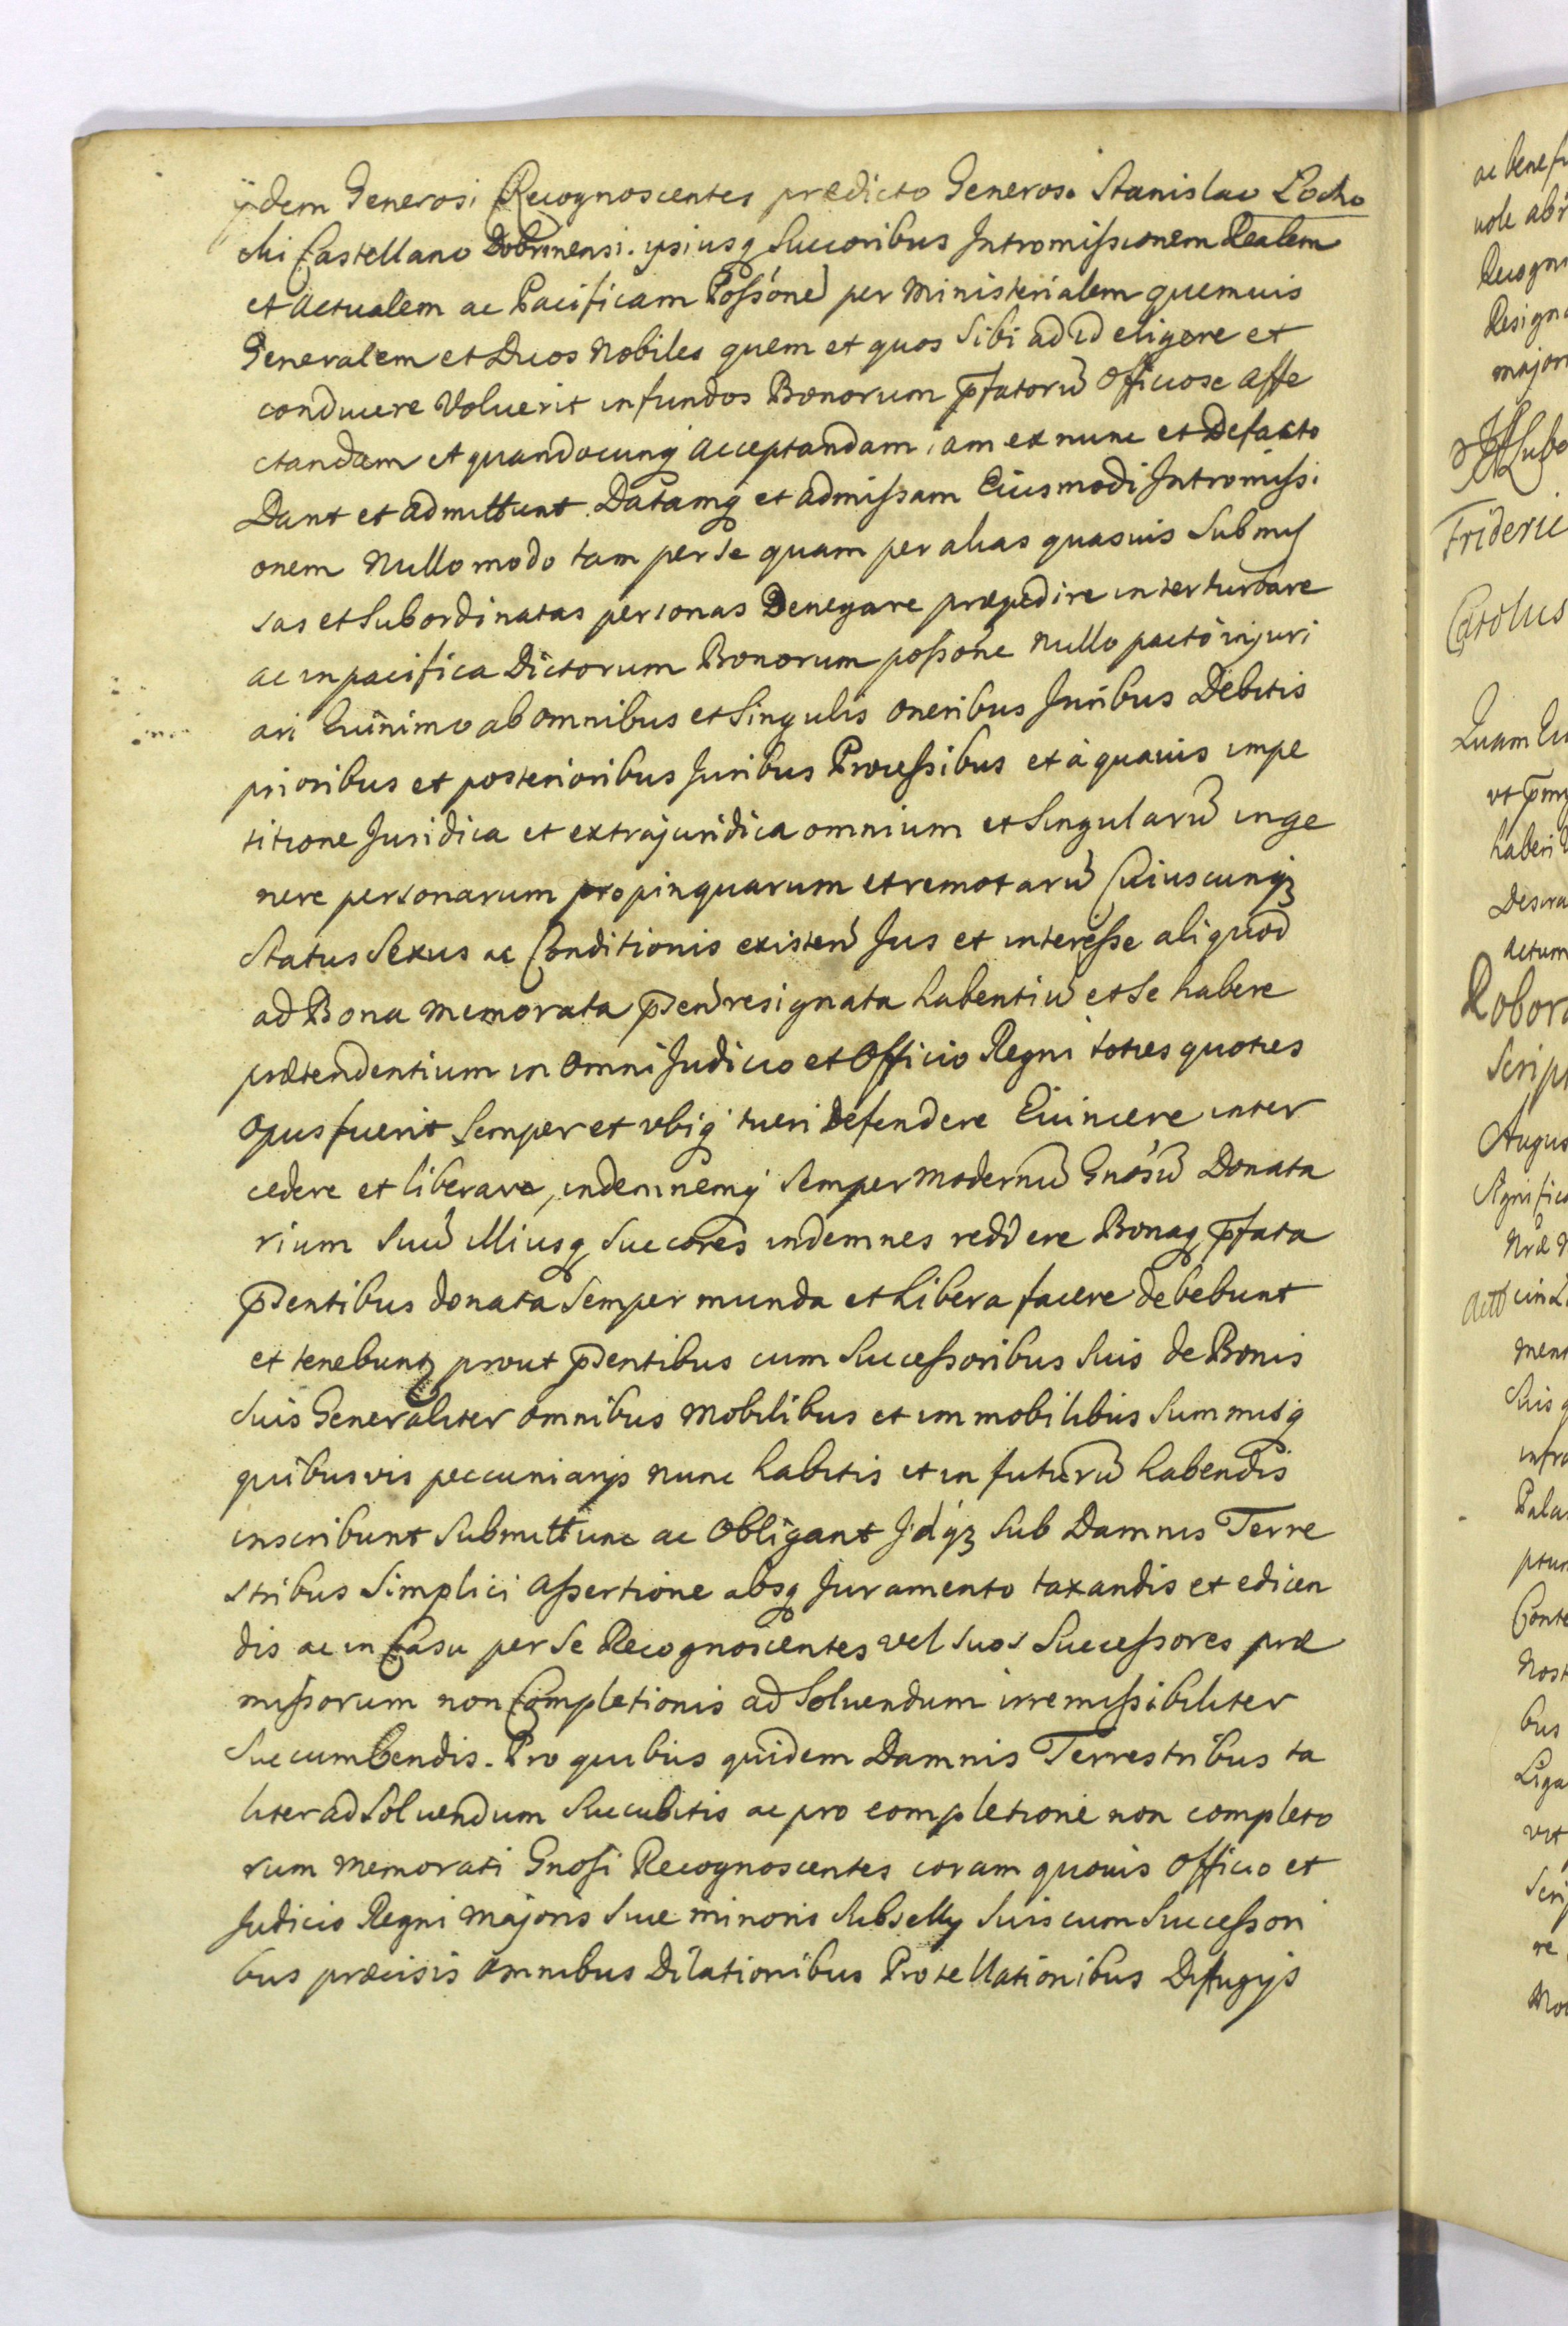 ijdem Generosi Recognoscentes prædicto Generoso Stanislao Locho
chi Castellano Dobrinensi ipsiusq Succoribus Intromissionem Realem
et actualem ac Pacificam Possone per Ministerialem quemuis
Generalem et Duos Nobiles quem et quos Sibi ad id eligere et
conducere Voluerit in fundos Bonorum pfatoru Officiose affe
ctandam et quandocunq acceptandam iam ex nunc et Defacto
Dant et admittunt. Datamq et admissam Eiusmodi Intromissi
onem Nullo modo tam per se quam per alias quasuis Submis
sas et Subordinatas personas Denegare præpedire inter turbare
ac in pacifica Dictorum Bonorum possone nullo pacto injuri
ari Quinimo ab omnibus et Singulis oneribus Juribus Debitis
prioribus et posterioribus Juribus Processibus et à quauis impe
titione Juridica et extrajuridica omnium et Singularu in ge
nere personarum propinquarum et remotaru Cuiuscunqz
Status Sexus ac Conditionis existen Jus et interesse aliquod
ad Bona memorata pden resignata habentiu et Se habere
prætendentium in omni Judicio et Officio Regni toties quoties
opus fuerit Semper et vbiq tueri Defendere Euincere inter
cedere et liberare, indemnemq Semper modernu Gnosu Donata
rium Suu illiusq Succores indemnes reddere Bonaq pfata
pdentibus donata Semper munda et Libera facere debebunt
et tenebunt prout pdentibus cum Successoribus Suis de Bonis
Suis Generaliter omnibus Mobilibus et immobilibus Summisq
quibusvis peccuniarijs nunc habitis et in futuru habendis
inscribunt Submittunt ac Obligant Idqz Sub Damnis Terre
stribus Simplici assertione absq Juramento taxandis et edicen
dis ac in Casu per Se Recognoscentes vel suos Successores præ
missorum non Completionis ad Soluendum irremissibiliter
Succumbendis. Pro quibus quidem Damnis Terrestribus ta
liter ad Soluendum Succubitis ac pro completione non completo
rum memorati Gnosi Recognoscentes coram quouis Officio et
Judicio Regni Majoris Siue minoris Subsellij Suis cum Successori
bus præcisis omnibus Dilationibus Protellationibus Diffugijs
ac benefi
Recogn
Resigna
major
Frideric
Carolus
Quam
haberi
actum
Robora
Script
Augus
Significa
Suis
infra
Pala
Conte
Nost
bus
Liga
vit
Scri
re